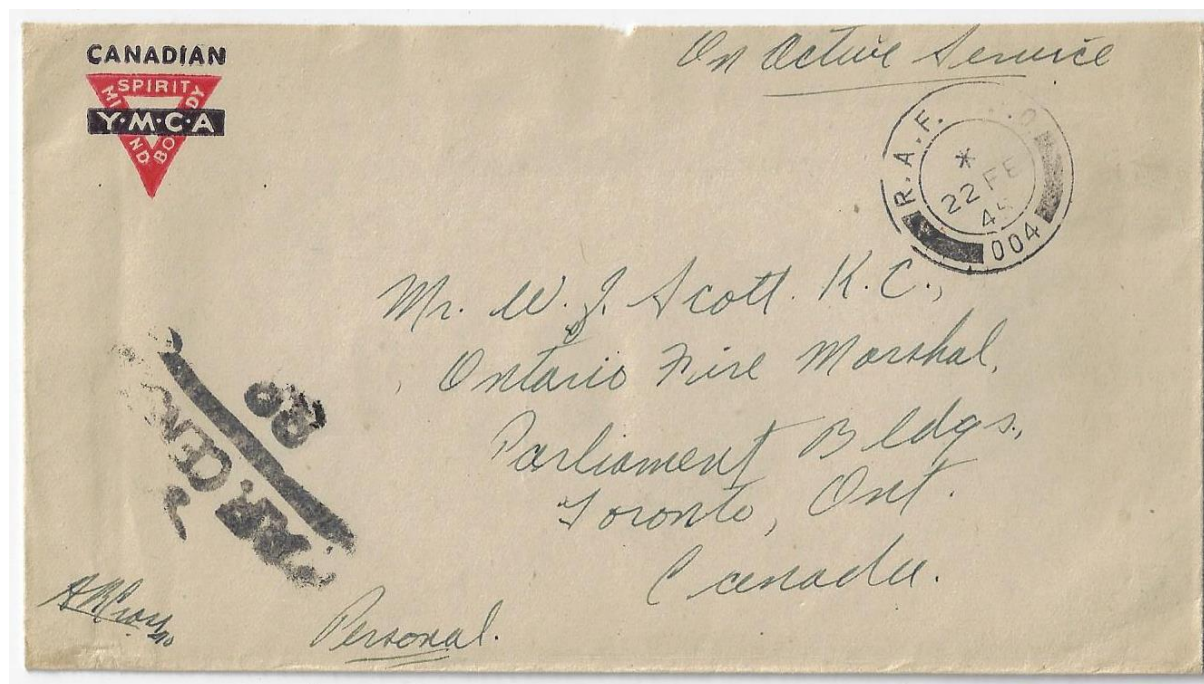 CANADIAN
SPIRIT
MIND
BODY
Y·M·C·A
On Active Service
R.A.F. P.O.
*
22 FE
45
004
Mr. W. J. Scott. K.C.,
Ontario Fire Marshal,
Parliament Bldgs.,
Toronto, Ont.
Canada.
Personal.